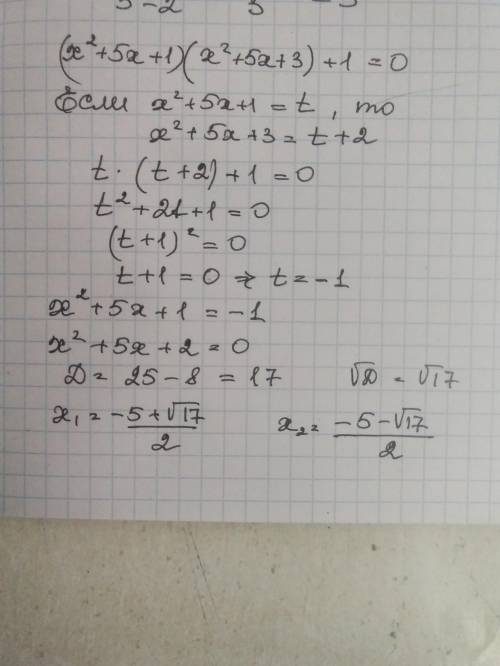 5-2 3 -5
(x²+5x+1)(x²+5x+3)+1=0
Если x²+5x+1=t, то
x²+5x+3=t+2
t·(t+2)+1=0
t²+2t+1=0
(t+1)²=0
t+1=0 ⇒ t=-1
x²+5x+1=-1
x²+5x+2=0
D=25-8=17 √D=√17
x₁=-5+√17/2 x₂=-5-√17/2